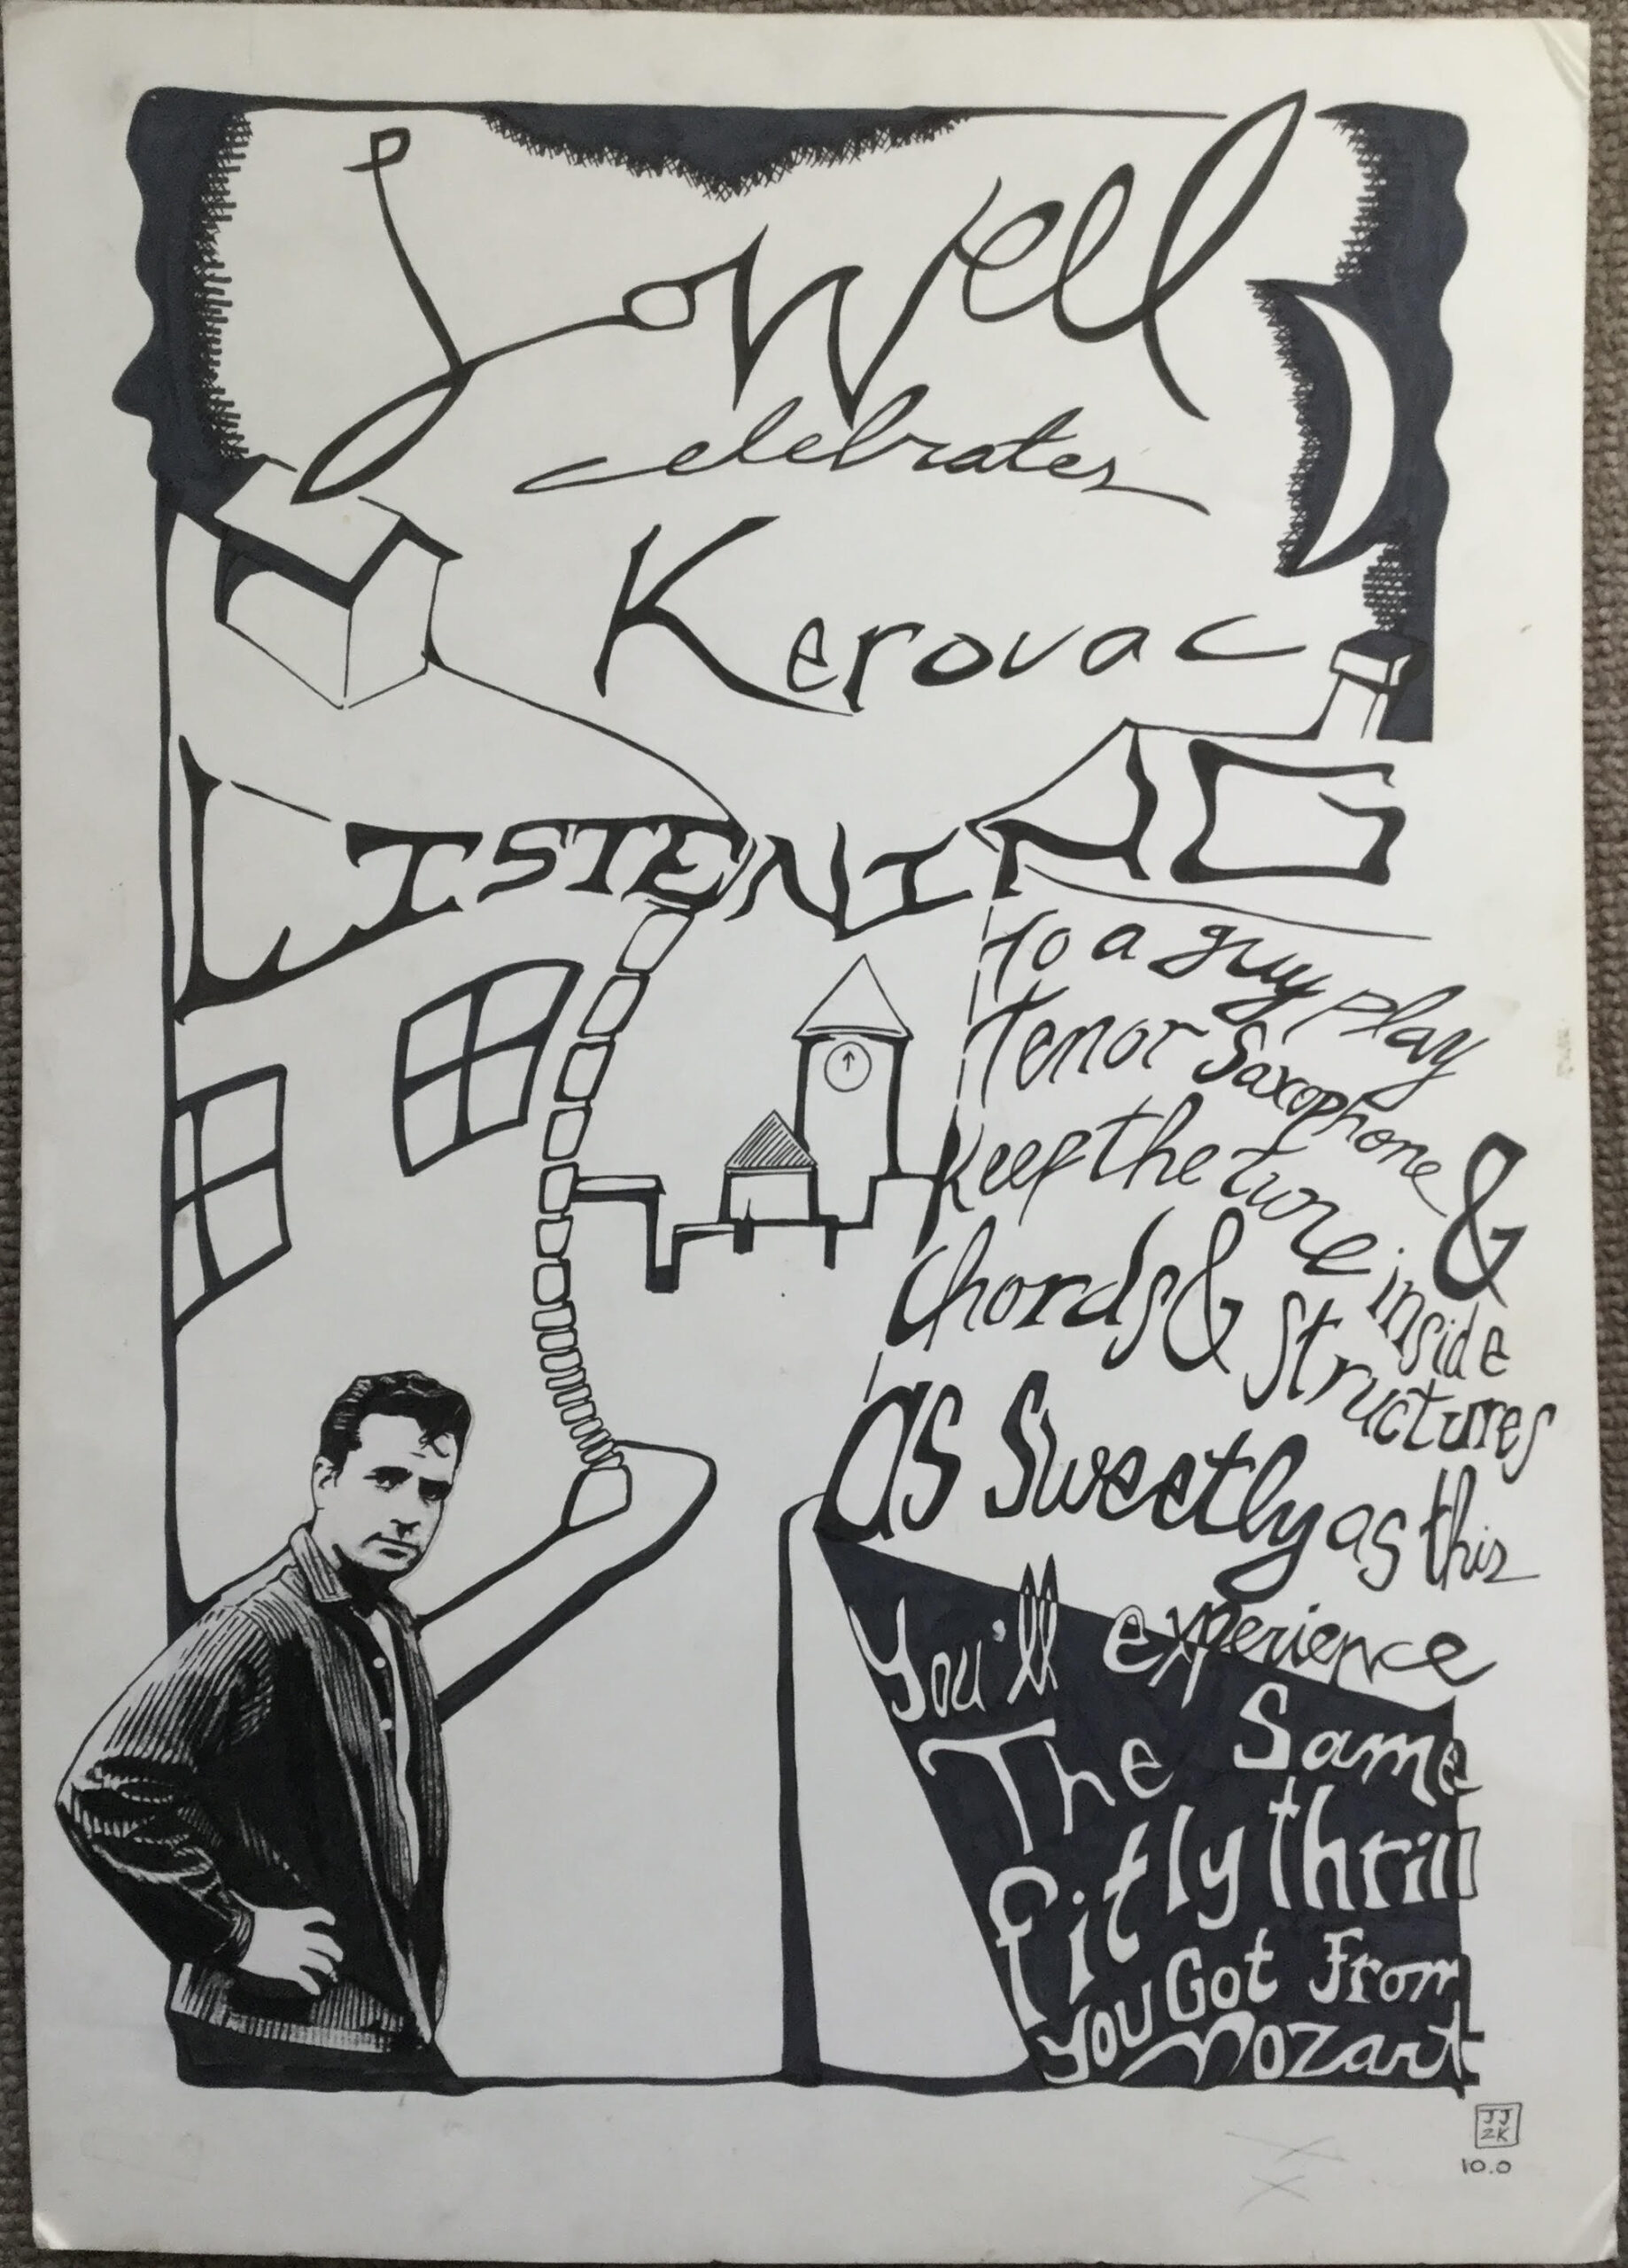 Lowell
celebrates
Kerouac
LISTENING
To a guy play
Tenor Saxophone &
Keep the tune inside
Chords & Structures
as Sweetly as this
You'll experience
The Same
fitly thrill
you Got From
Mozart
JJ
ZK
10.0